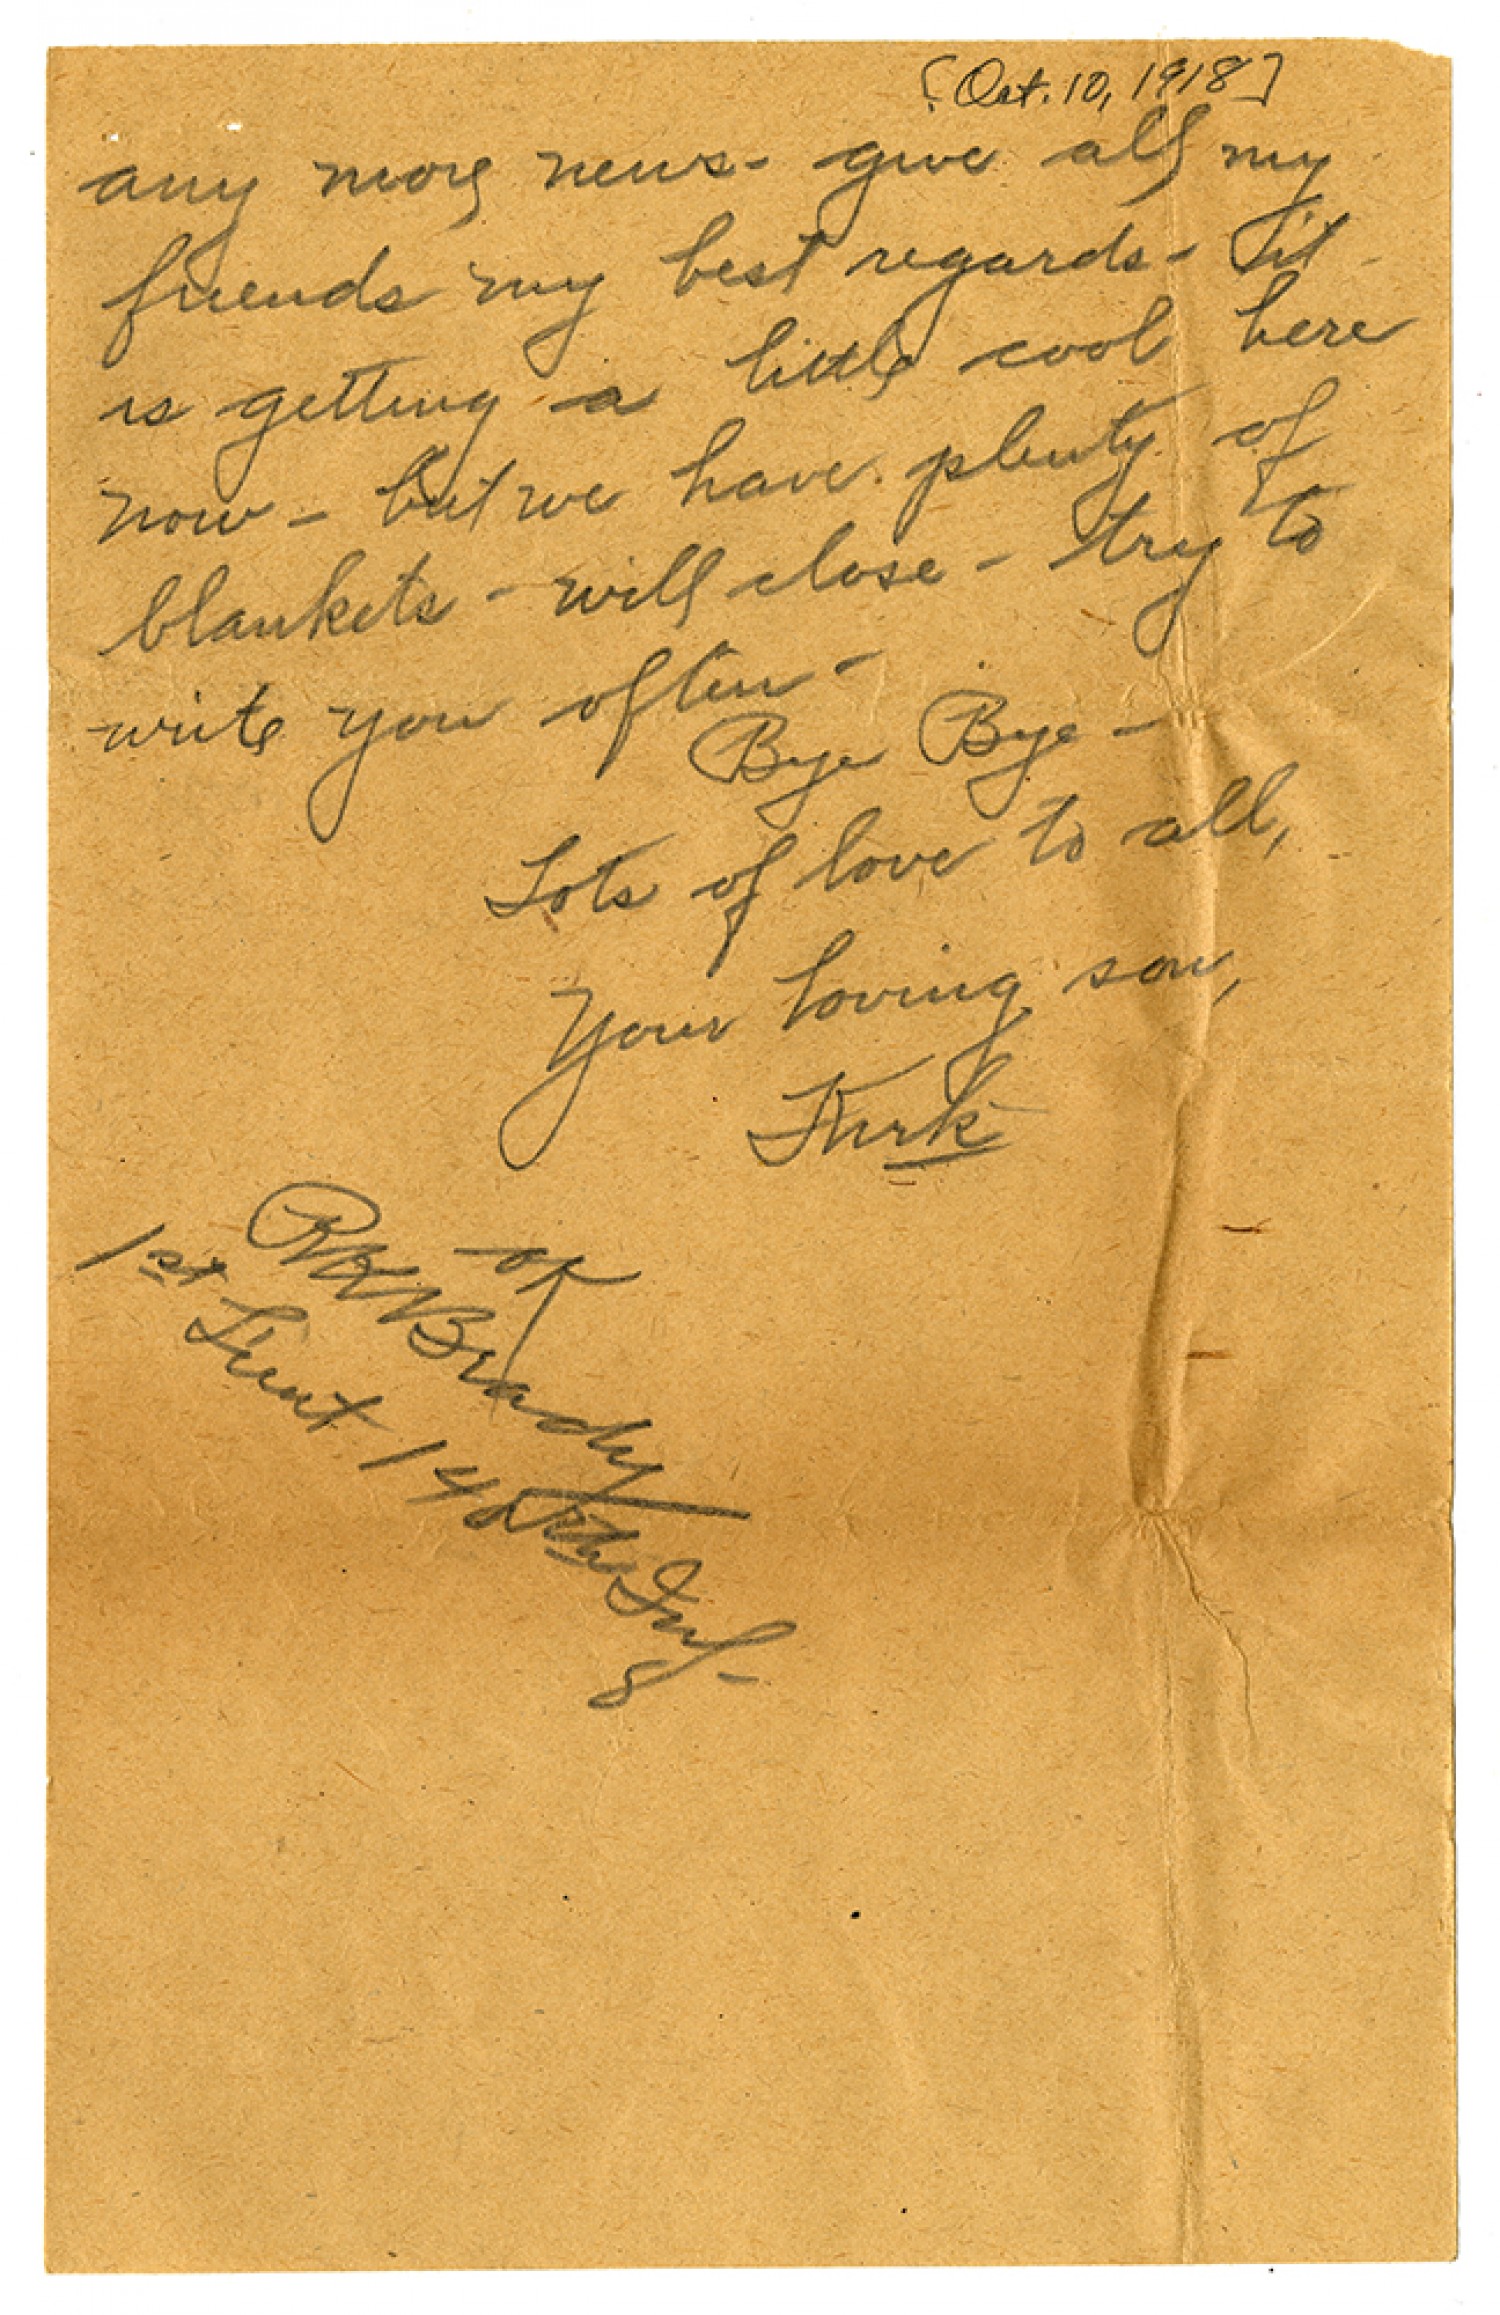 [Oct. 10, 1918]
any more news - give all my
friends my best regards - it
is getting a little cool here
now - but we have plenty of
blankets - will close - try to
write you often -
Bye Bye -
Lots of love to all,
Your loving son,
Kirk
OK
Brady
1st Lieut. 140th Inf-